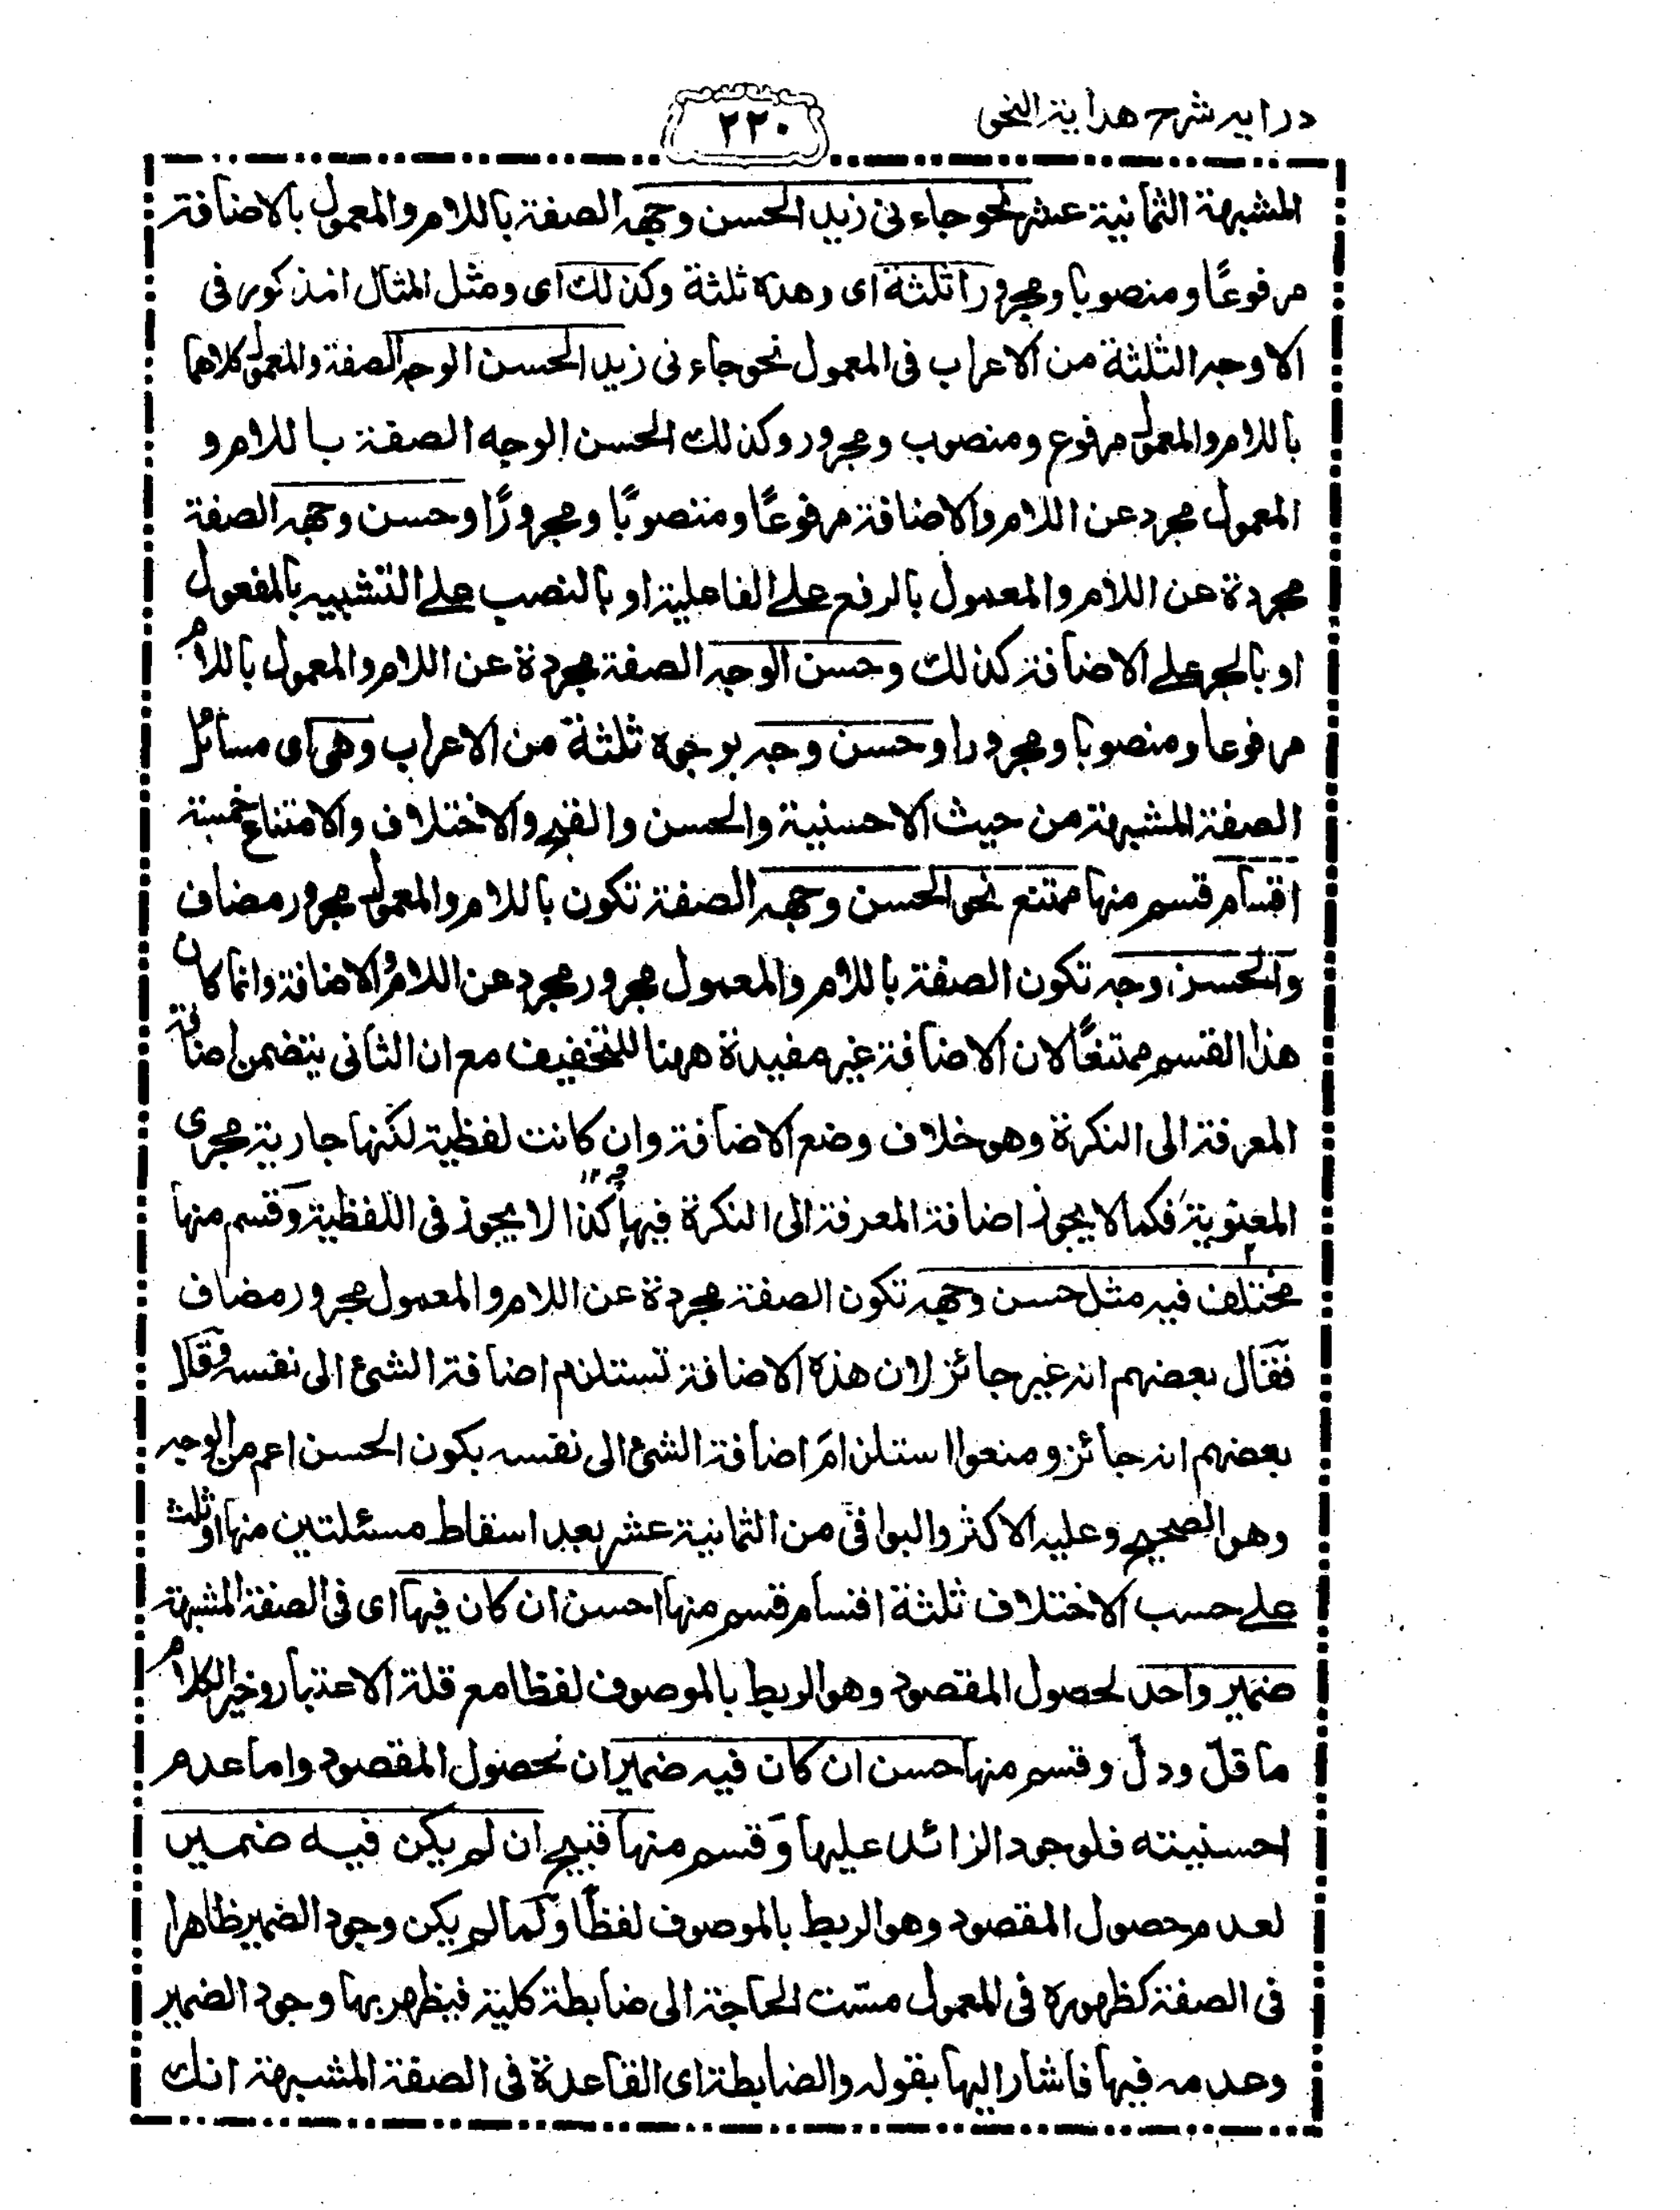 درايه شرح هداية النحو
٢٢٠
المشبهة الثمانية عشر نحو جاءنى زيد الحسن وجهه الصفة باللام والمعمول بالاضافة
مرفوعًا ومنصوبا ومجرورا ثلثة اى وهذه ثلثة وكذلك اى ومثل المثال المذكور فى
الاوجه الثلثة من الاعراب فى المعمول نحو جاءنى زيد الحسن الوجه الصفة والمعمول كلاهما
باللام والمعمول مرفوع ومنصوب ومجرور وكذلك الحسن الوجه الصفة باللام و
المعمول مجرد عن اللام والاضافة مرفوعًا ومنصوبًا ومجرورًا وحسن وجهه الصفة
مجردة عن اللام والمعمول بالرفع على الفاعلية او بالنصب على التشبيه بالمفعول
او بالجر على الاضافة كذلك وحسن الوجه الصفة مجردة عن اللام والمعمول باللام
مرفوعا ومنصوبا ومجرورا وحسن وجه بوجوه ثلثة من الاعراب وهى اى مسائل
الصفة المشبهة من حيث الاحسنية والحسن والقبح والاختلاف والامتناع خمسة
اقسام قسم منها ممتنع نحو الحسن وجهه الصفة تكون باللام والمعمول مجرور مضاف
والحسن وجه تكون الصفة باللام والمعمول مجرور مجرد عن اللام والاضافة وانما كان
هذا القسم ممتنعًا لان الاضافة غير مفيدة ههنا للتخفيف مع ان الثانى يتضمن اضافة
المعرفة الى النكرة وهو خلاف وضع الاضافة وان كانت لفظية لكنها جارية مجرى
المعنوية فكما لا يجوز اضافة المعرفة الى النكرة فيها كذا لا يجوز فى اللفظية وقسم منها
مختلف فيه مثل حسن وجهه تكون الصفة مجردة عن اللام والمعمول مجرور مضاف
فقال بعضهم انه غير جائز لان هذه الاضافة تستلزم اضافة الشئ الى نفسه وقال
بعضهم انه جائز ومنعوا استلزام اضافة الشئ الى نفسه بكون الحسن اعم من الوجه
وهو الصحيح وعليه الاكثر والبواقى من الثمانية عشر بعد اسقاط مسئلتين منها او ثلث
على حسب الاختلاف ثلثة اقسام قسم منها احسن ان كان فيها اى فى الصفة المشبهة
ضمير واحد لحصول المقصود وهو الربط بالموصوف لفظا مع قلة الاعتبار وخير الكلام
ما قلّ ودلّ وقسم منها حسن ان كان فيه ضميران لحصول المقصود واما عدم
احسنيته فلوجود الزائد عليها وقسم منها قبيح ان لم يكن فيه ضمير
لعدم حصول المقصود وهو الربط بالموصوف لفظًا ولما لم يكن وجود الضمير ظاهرا
فى الصفة كظهوره فى المعمول مسّت الحاجة الى ضابطة كلية فيظهر بها وجود الضمير
وعدمه فيها فاشار اليها بقوله والضابطة اى القاعدة فى الصفة المشبهة انك